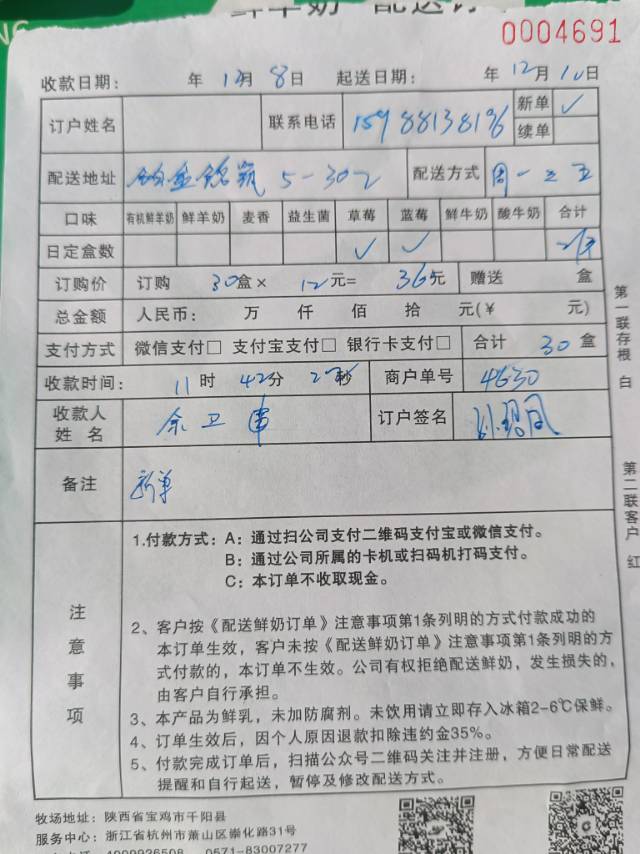 鲜羊奶 配送订
0004691
收款日期: 年 12月 8日 起送日期: 年 12月 10日
订户姓名 联系电话 15988138196 新单 ✓
续单
配送地址 5-302 配送方式 周一三五
口味 有机鲜羊奶 鲜羊奶 麦香 益生菌 草莓 蓝莓 鲜牛奶 酸牛奶 合计
日定盒数 ✓ ✓
订购价 订购 30盒× 12元= 36元 赠送 盒
总金额 人民币: 万 仟 佰 拾 元(¥ 元)
支付方式 微信支付□ 支付宝支付□ 银行卡支付□ 合计 30 盒
收款时间: 11时 42分 秒 商户单号 4630
收款人姓名 余卫 订户签名
备注 新单
注意事项
1.付款方式: A: 通过扫公司支付二维码支付宝或微信支付。
B: 通过公司所属的卡机或扫码机打码支付。
C: 本订单不收取现金。
2、客户按《配送鲜奶订单》注意事项第1条列明的方式付款成功的
本订单生效，客户未按《配送鲜奶订单》注意事项第1条列明的方
式付款的，本订单不生效。公司有权拒绝配送鲜奶，发生损失的，
由客户自行承担。
3、本产品为鲜乳，未加防腐剂。未饮用请立即存入冰箱2-6℃保鲜。
4、订单生效后，因个人原因退款扣除违约金35%。
5、付款完成订单后，扫描公众号二维码关注并注册，方便日常配送
提醒和自行起送，暂停及修改配送方式。
第一联存根 白
第二联客户 红
牧场地址: 陕西省宝鸡市千阳县
服务中心: 浙江省杭州市萧山区崇化路31号
4000936508 0571-83007277